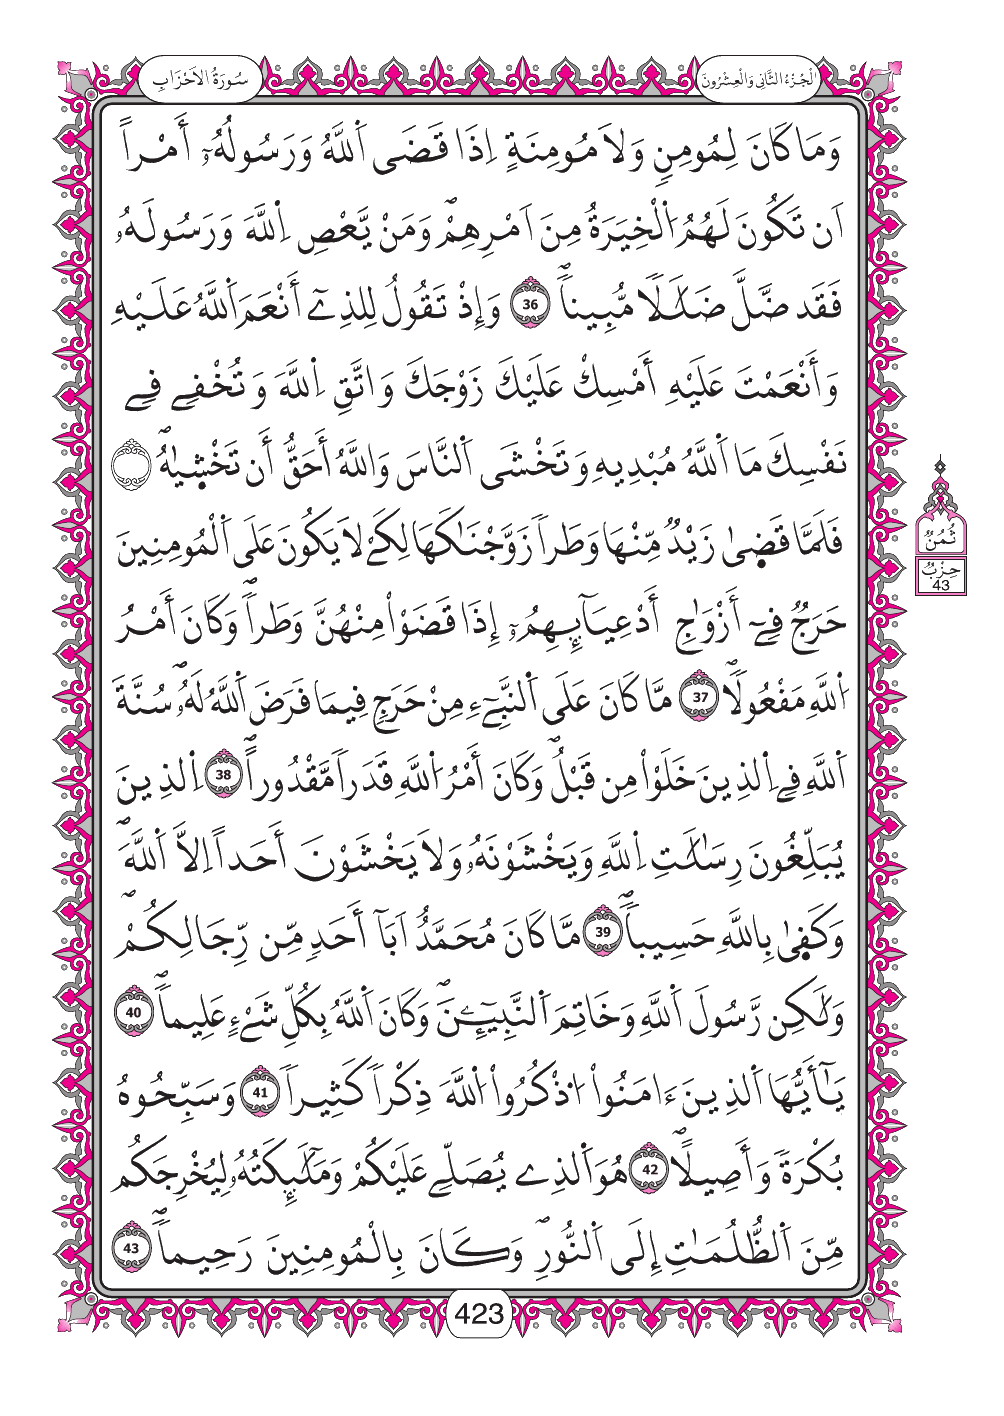 الجزء الثاني والعشرون
سورة الاحزاب
وَمَا كَانَ لِمُومِنٖ وَلَا مُومِنَةٍ اِذَا قَضَى اَ۬للَّهُ وَرَسُولُهُۥٓ أَمْراً
اَن تَكُونَ لَهُمُ اُ۬لْخِيَرَةُ مِنَ اَمْرِهِمْۖ وَمَنْ يَّعْصِ اِ۬للَّهَ وَرَسُولَهُۥ
فَقَد ضَّلَّ ضَلَٰلاٗ مُّبِيناٗۖ 36 وَإِذْ تَقُولُ لِلذِےٓ أَنْعَمَ اَ۬للَّهُ عَلَيْهِ
وَأَنْعَمْتَ عَلَيْهِ أَمْسِكْ عَلَيْكَ زَوْجَكَ وَاتَّقِ اِ۬للَّهَ وَتُخْفِے فِے
نَفْسِكَ مَا اَ۬للَّهُ مُبْدِيهِ وَتَخْشَى اَ۬لنَّاسَ وَاللَّهُ أَحَقُّ أَن تَخْشٜيٰهُۖ
فَلَمَّا قَضٜىٰ زَيْدٌ مِّنْهَا وَطَراٗ زَوَّجْنَٰكَهَا لِكَےْ لَا يَكُونَ عَلَى اَ۬لْمُومِنِينَ
حَرَجٌ فِےٓ أَزْوَٰجِ أَدْعِيَآئِهِمُۥٓ إِذَا قَضَوْاْ مِنْهُنَّ وَطَراٗۖ وَكَانَ أَمْرُ
اُ۬للَّهِ مَفْعُولاٗۖ 37 مَّا كَانَ عَلَى اَ۬لنَّبِےٓءِ مِنْ حَرَجٖ فِيمَا فَرَضَ اَ۬للَّهُ لَهُۥۖ سُنَّةَ
اَ۬للَّهِ فِے اِ۬لذِينَ خَلَوْاْ مِن قَبْلُۖ وَكَانَ أَمْرُ اُ۬للَّهِ قَدَراٗ مَّقْدُوراًۖ 38 اِ۬لذِينَ
يُبَلِّغُونَ رِسَٰلَٰتِ اِ۬للَّهِ وَيَخْشَوْنَهُۥ وَلَا يَخْشَوْنَ أَحَداً اِلَّا اَ۬للَّهَۖ
وَكَفٜىٰ بِاللَّهِ حَسِيباٗۖ 39 مَّا كَانَ مُحَمَّدٌ اَبَآ أَحَدٖ مِّن رِّجَالِكُمْۖ
وَلَٰكِن رَّسُولَ اَ۬للَّهِ وَخَاتِمَ اَ۬لنَّبِيٓـِٕينَۖ وَكَانَ اَ۬للَّهُ بِكُلِّ شَےْءٍ عَلِيماٗۖ 40
يَٰٓأَيُّهَا اَ۬لذِينَ ءَامَنُواْ اُ۟ذْكُرُواْ اُ۬للَّهَ ذِكْراٗ كَثِيراٗ 41 وَسَبِّحُوهُ
بُكْرَةٗ وَأَصِيلاًۖ 42 هُوَ اَ۬لذِے يُصَلِّے عَلَيْكُمْ وَمَلَٰٓئِكَتُهُۥ لِيُخْرِجَكُم
مِّنَ اَ۬لظُّلُمَٰتِ إِلَى اَ۬لنُّورِۖ وَكَانَ بِالْمُومِنِينَ رَحِيماٗۖ 43
ثُمُنُ
حِزْبُ
43
423